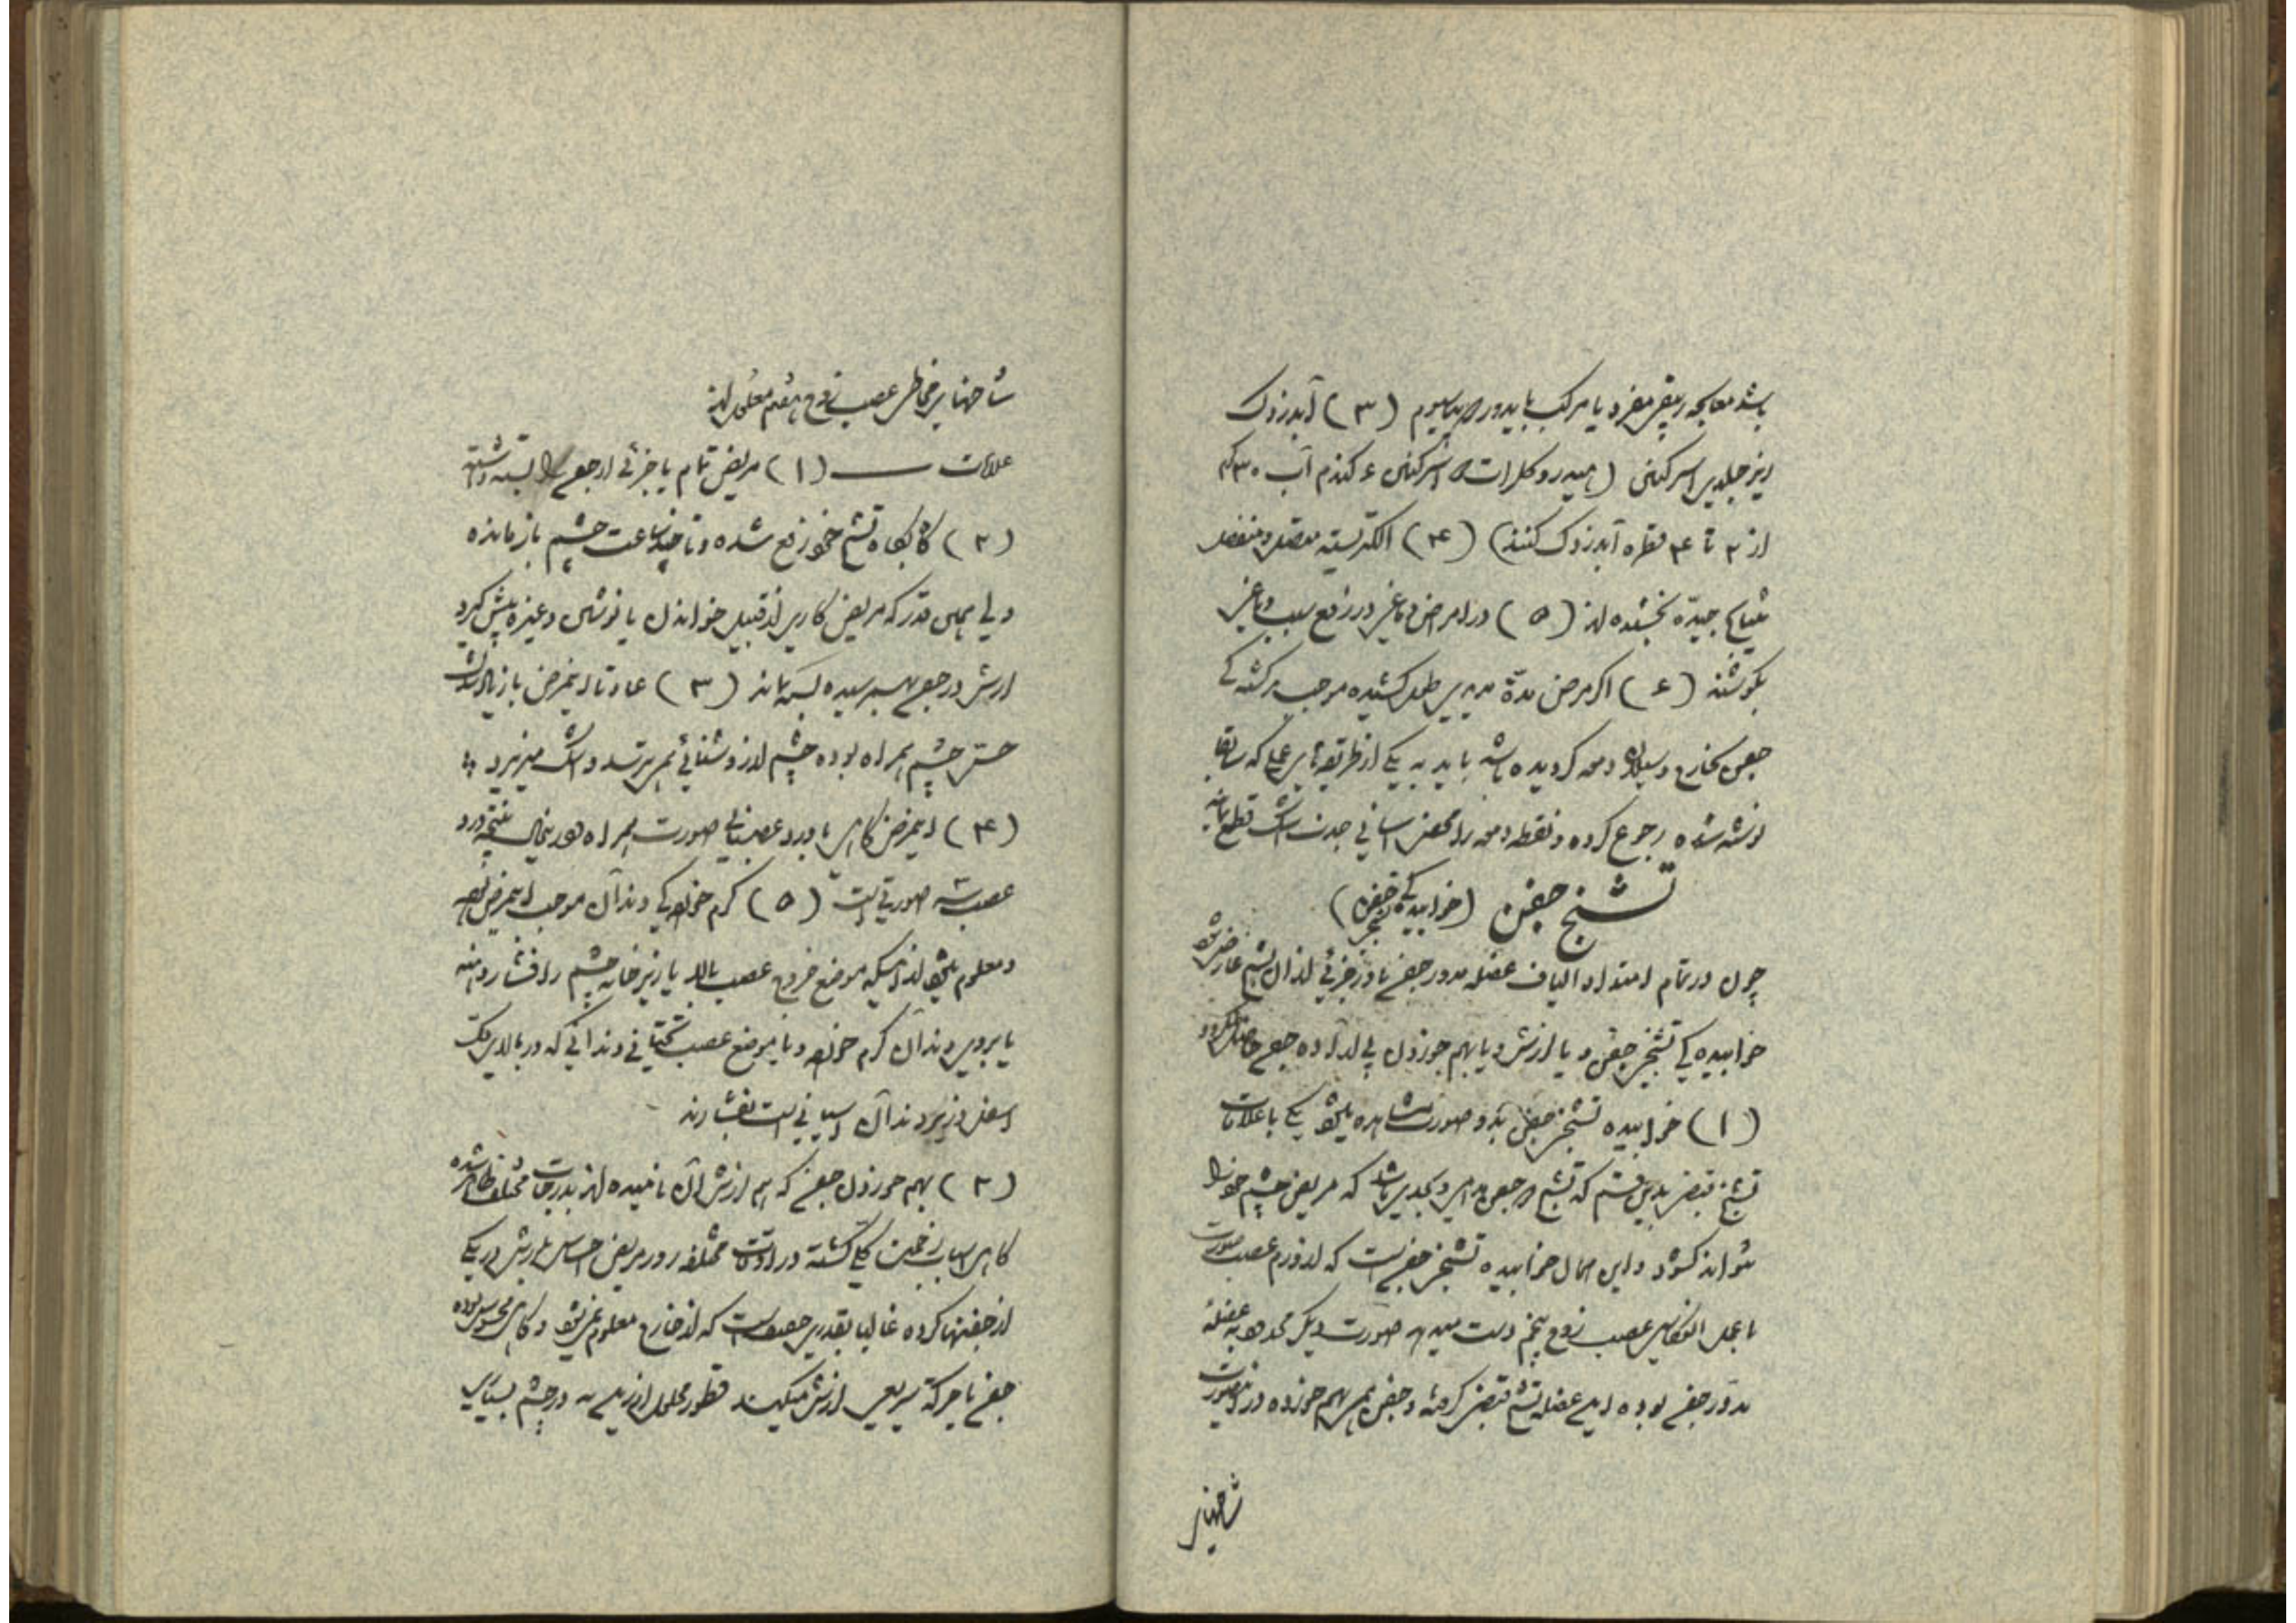 باشد معالجه زیبقی مفرد یا مرکب با یدور پتاسیوم (۳) آبدزدک
زیر جلدی استرکنین (هیدروکلرات استرکنین ۶ گندم آب ۳۰ گرم
از ۲ تا ۴ قطره آبدزدک کنند) (۴) الکتریسته متصل و منفصل
نتایج جیده بخشیده اند (۵) در امراض دماغی در رفع سبب دماغی
بکوشند (۶) اگر مرض مدة مدیدی طول کشیده موجب برگشتگی
جفن بخارج و سیلان دمعه گردیده باشد باید به یکی از طریقهای عملی که سابقا
نوشته شده رجوع کرده و نقطه دمعه را محض آسانی جذب اشک قطع نمایند
تشنج جفن (خوابیدگی تشنجی جفن)
چون در تمام امتداد الیاف عضله مدور جفن یا در جزئی از آن تشنج عارض شود
خوابیدگی تشنجی جفن و یا لرزش و یا بهم خوردن بی اراده جفن حاصل گردد
(۱) خوابیده تشنجی جفن بدو صورت مشاهده میشود یکی با علامات
تشنج قبضی بدین قسم که تشنج در جفن دائمی و بحدی باشد که مریض چشم خود را
نتواند گشود و این حال خوابیده تشنجی جفن است که از ورم عصب صورت
یا عمل انعکاسی عصب زوج پنجم دست میدهد صورت دیگر محدود به عضله
مدور جفن بوده این عضله تشنج قبضی کرده و جفن هم بهم خورده در اینصورت
شاخهای
شاخهای فخاطی عصب زوج پنجم معلول اند
علامات — (۱) مریض تمام یا جزئی از جفن را بسته داشته
(۲) گاه بگاه تشنج خود رفع شده و تا چند ساعت چشم باز مانده
ولی همین قدر که مریض کاری از قبیل خواندن یا نوشتن و غیره پیش گیرد
لرزش در جفن بهم رسیده بسته ماند (۳) عادتا اینمرض با زیادتی
حس چشم همراه بوده چشم از روشنائی میترسد و اشک میریزد
(۴) اینمرض گاهی با درد عصبانی صورت همراه و در اینحال نتیجه درد
عصب صورتی است (۵) کرم خوردگی دندان موجب اینمرض بوده
و معلوم میشود از اینکه موضع خروج عصب بالا یا زیر خانه چشم را فشار دهند
یا بروی دندان کرم خورده و یا موضع عصب تحتانی دندانی که در بالای فک
اسفل و زیر دندان آسیابی است بفشارند
(۲) بهم خوردن جفن که هم لرزش آن نامیده اند بدرجات مختلف ظاهر شده
گاهی اسباب زحمت کلی گشته در اوقات مختلفه روز مریض احساس لرزش در یکی
از جفنها کرده غالبا بقدری خفیف است که از خارج معلوم نمیشود و گاهی محسوس بوده
جفن با حرکة سریعی لرزش میکند قطور محلول ازرین در چشم بسیاری